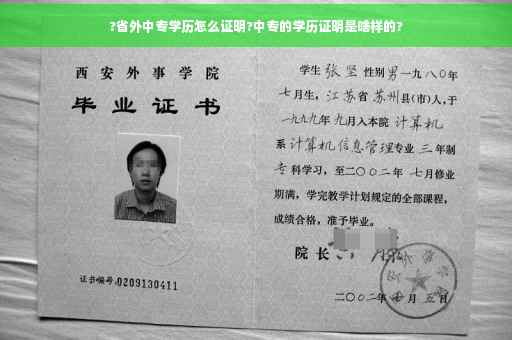 ?省外中专学历怎么证明?中专的学历证明是啥样的?
西安外事学院
毕业证书
证书编号:0209130411
学生 张坚 性别 男 一九八〇年
七月生，江苏省 苏州 县(市)人，于
一九九九年 九月入本院 计算机
系 计算机信息管理专业 三 年制
专 科学习，至二〇〇二年 七月修业
期满，学完教学计划规定的全部课程，
成绩合格，准予毕业。
院长
二〇〇二年 月 五 日